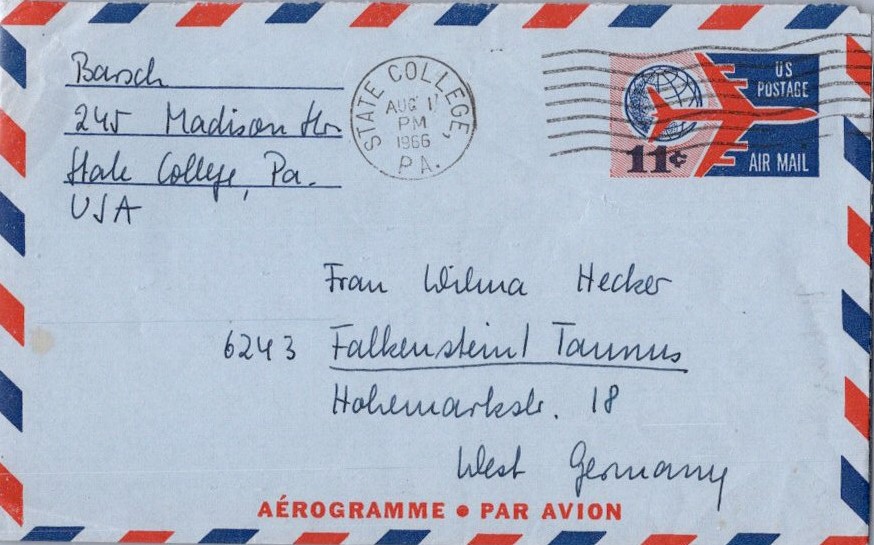 Barsch
245 Madison Str
State College, Pa.
USA
STATE COLLEGE,
AUG 1
PM
1966
PA.
US
POSTAGE
11¢
AIR MAIL
Frau Wilma Hecker
6243 Falkenstein/Taunus
Hohemarkstr. 18
West Germany
AÉROGRAMME • PAR AVION